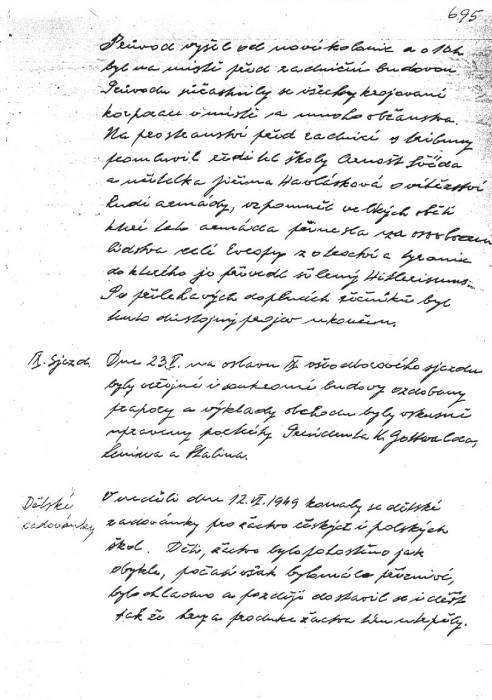 695
Průvod vyšel od nové kolonie a o 10h
byl na místě před radniční budovou
Průvodu súčastnily se všechny krojované
korporace v místě a mnoho občanstva.
Na prostranství před radnicí s tribuny
promluvil říditel školy Arnošt
a učitelka Jiřina Havlásková o vítězství
Rudé armády, vzpomněli velkých obětí
které tato armáda přinesla za osvobození
lidstva celé Evropy z otroctví a tyranie
do kterého jo přivedl šílený Hitlerismus.
Po přiléhavých doplncích řečníků byl
tento důstojný projev ukončen.
IX. Sjezd. Dne 23.V. na oslavu IX všeodborového sjezdu
byly veřejné i soukromé budovy ozdobeny
prapory a výklady obchodu byly vkusně
upraveny portréty Presidenta K. Gottwalda,
Lenina a Stalina.
Dětské radovánky
V neděli dne 12.VI.1949 konaly se dětské
radovánky pro žactvo českých i polských
škol. Děti, žactvo bylo pohostěno jak
obykle, počasí však bylo málo příznivé,
bylo chladno a později dostavil se i déšť
tak že hry a produkce žactva tím utrpěly.